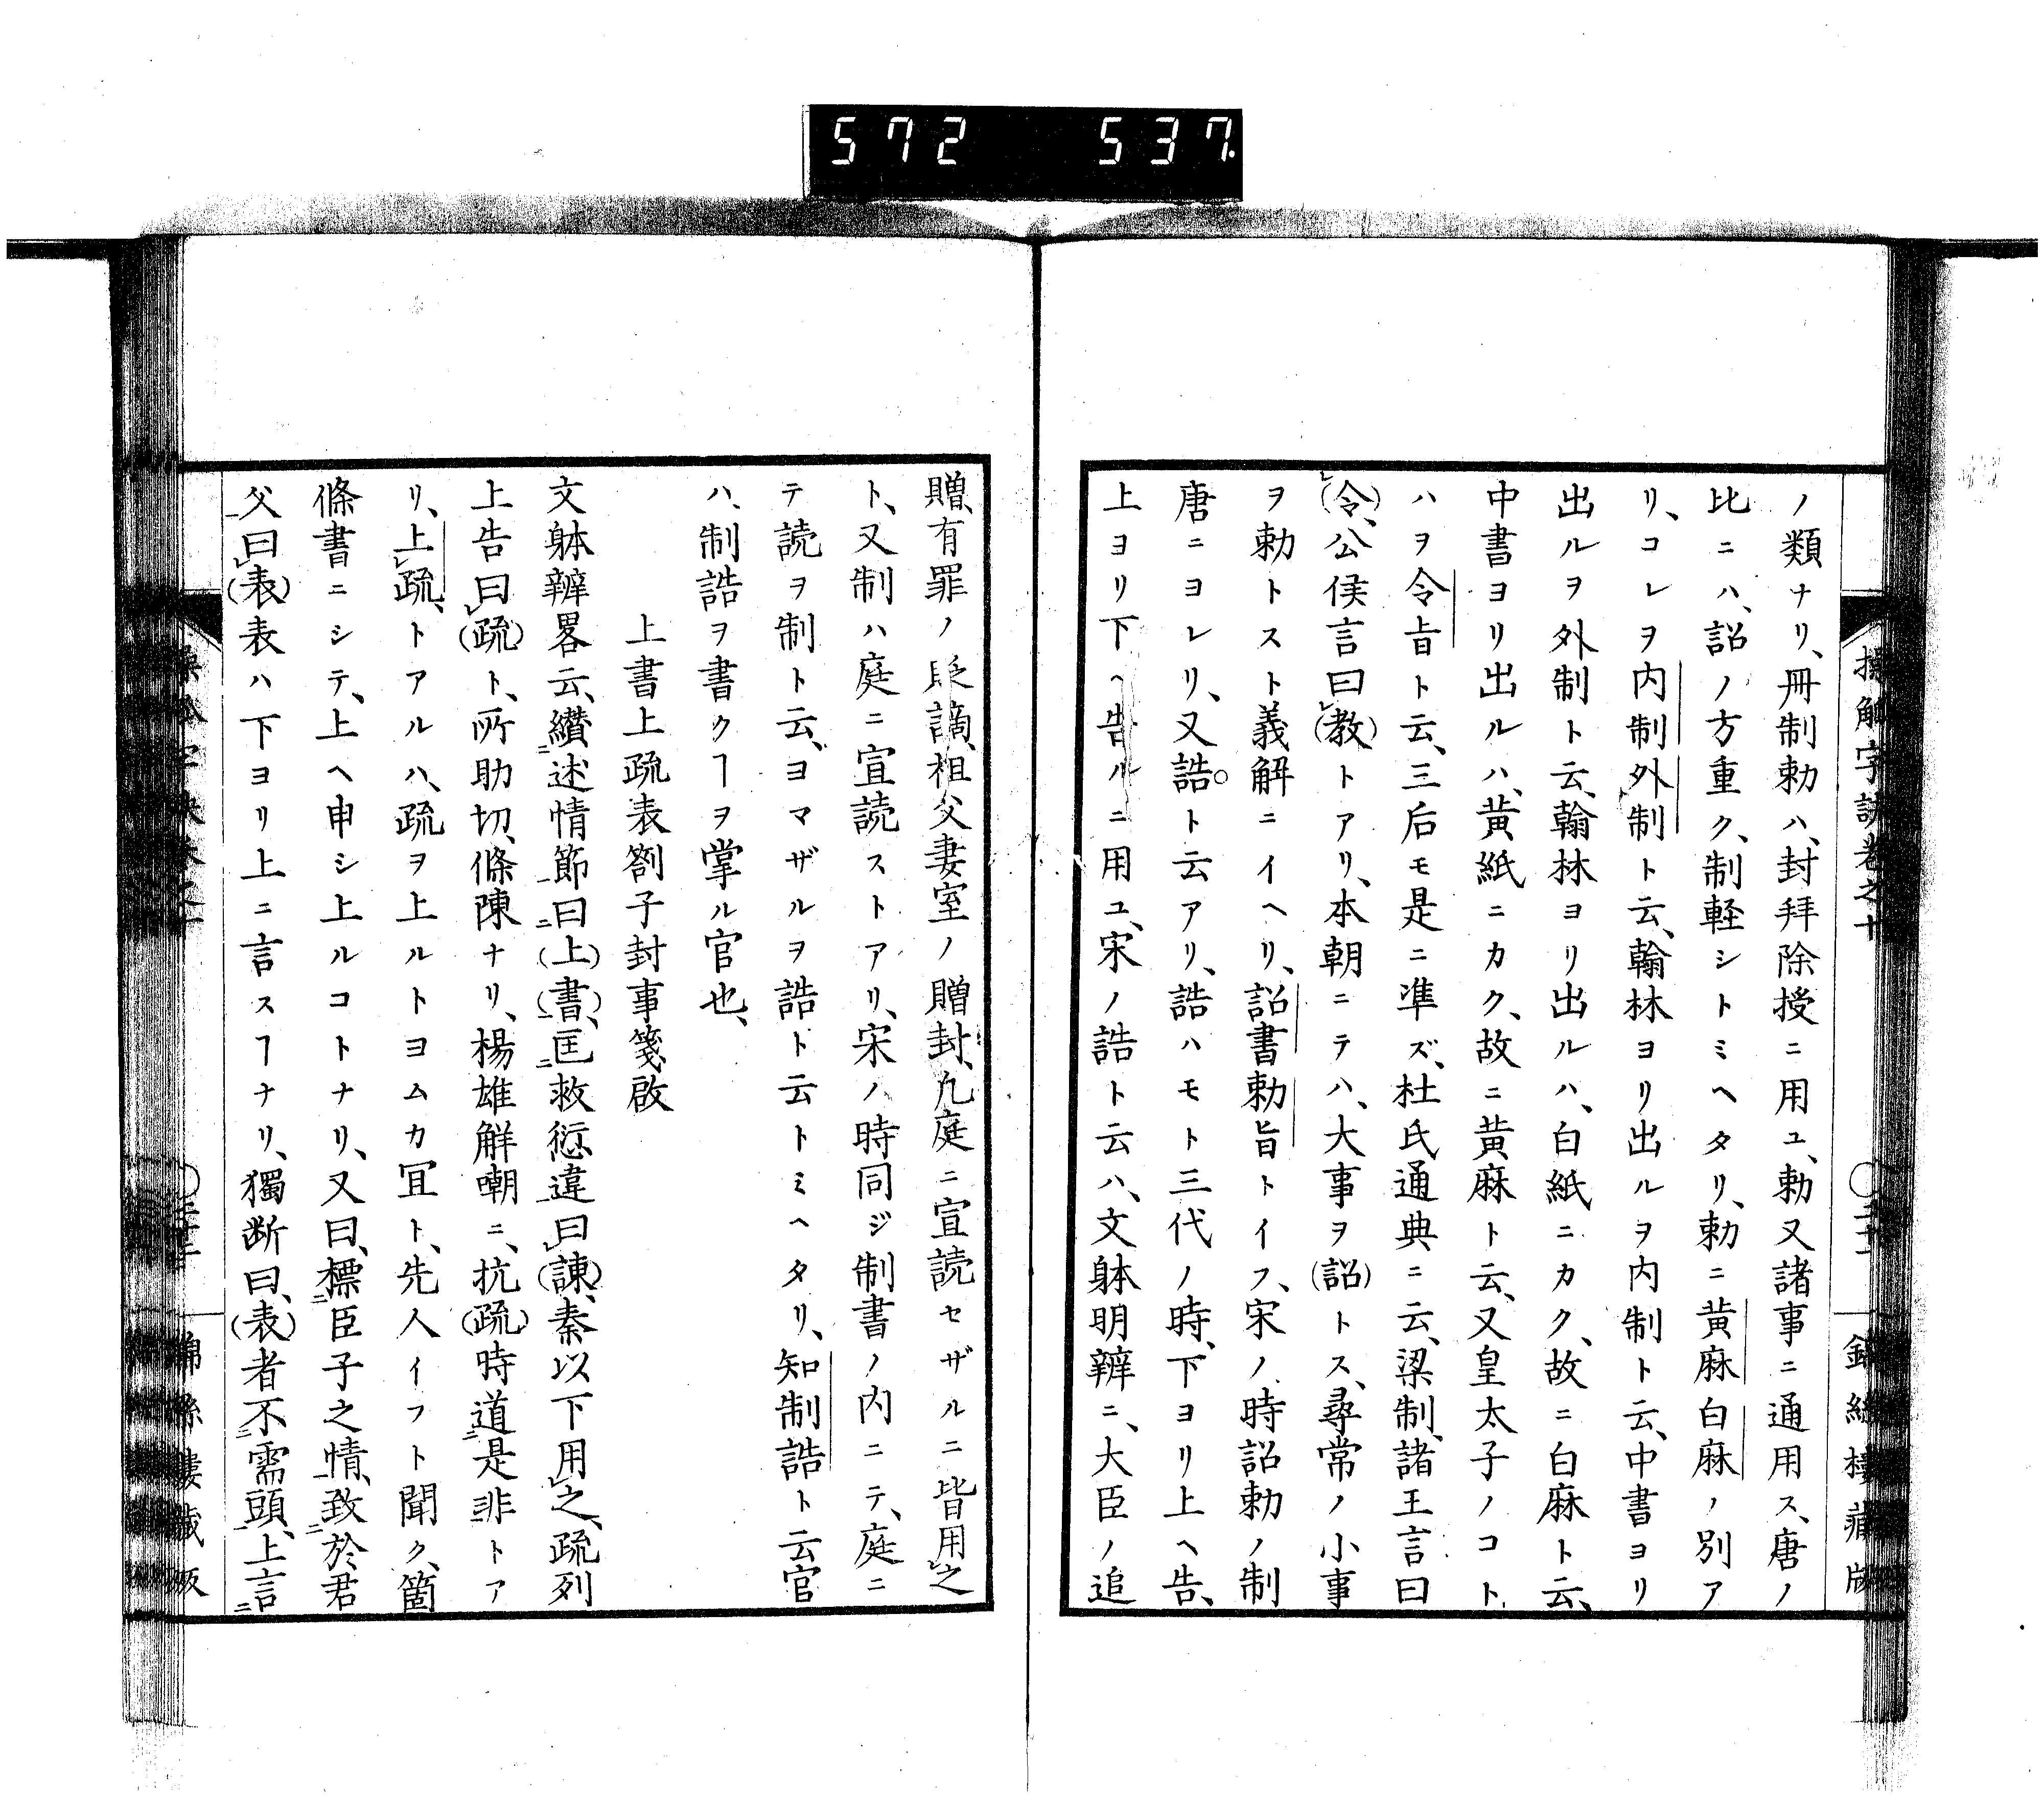 572 537.
ノ類ナリ、冊制勅ハ、封拜除授ニ用ユ、勅又諸事ニ通用ス、唐ノ
比ニハ、詔ノ方重ク、制軽シトミヘタリ、勅ニ黄麻白麻ノ別ア
リ、コレヲ内制外制ト云、翰林ヨリ出ルヲ内制ト云、中書ヨリ
出ルヲ外制ト云、翰林ヨリ出ルハ、白紙ニカク、故ニ白麻ト云、
中書ヨリ出ルハ、黄紙ニカク、故ニ黄麻ト云、又皇太子ノコト
ハヲ令旨ト云、三后モ是ニ準ズ、杜氏通典ニ云、梁制、諸王言曰
(令)、公侯言曰(教)トアリ、本朝ニテハ、大事ヲ(詔)トス、尋常ノ小事
ヲ勅トスト義解ニイヘリ、詔書勅旨トイフ、宋ノ時詔勅ノ制
唐ニヨレリ、又誥ト云アリ、誥ハモト三代ノ時、下ヨリ上ヘ告、
上ヨリ下ヘ告ルニ用ユ、宋ノ誥ト云ハ、文躰明辨ニ、大臣ノ追
贈、有罪ノ貶謫、祖父妻室ノ贈封、凡庭ニ宣読セザルニ皆用之
ト、又制ハ庭ニ宣読ストアリ、宋ノ時同ジ制書ノ内ニテ、庭ニ
テ読ヲ制ト云、ヨマザルヲ誥ト云トミヘタリ、知制誥ト云官
ハ、制誥ヲ書クヿヲ掌ル官也、
上書上疏表劄子封事箋啟
文躰辨畧云、纉述情節曰(上)(書)、匡救愆違曰(諫)、秦以下用之、疏列
上告曰(疏)ト、所助切、條陳ナリ、楊雄解嘲ニ、抗(疏)時道是非トア
リ、上疏、トアルハ、疏ヲ上ルトヨムカ冝ト、先人イフト聞ク、箇
條書ニシテ、上ヘ申シ上ルコトナリ、又曰、標臣子之情、致於君
父曰(表)表ハ下ヨリ上ニ言スヿナリ、獨断曰、(表)者不需頭、上言